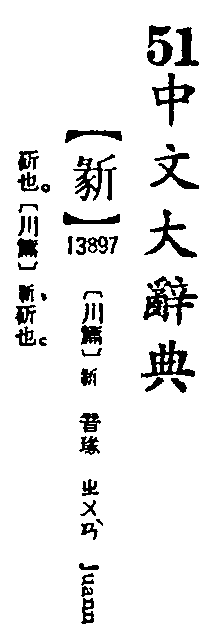 51
中文大辭典
【】
13897
〔川篇〕音瑑 ㄓㄨㄢˋ Juann
斫也。〔川篇〕、斫也。